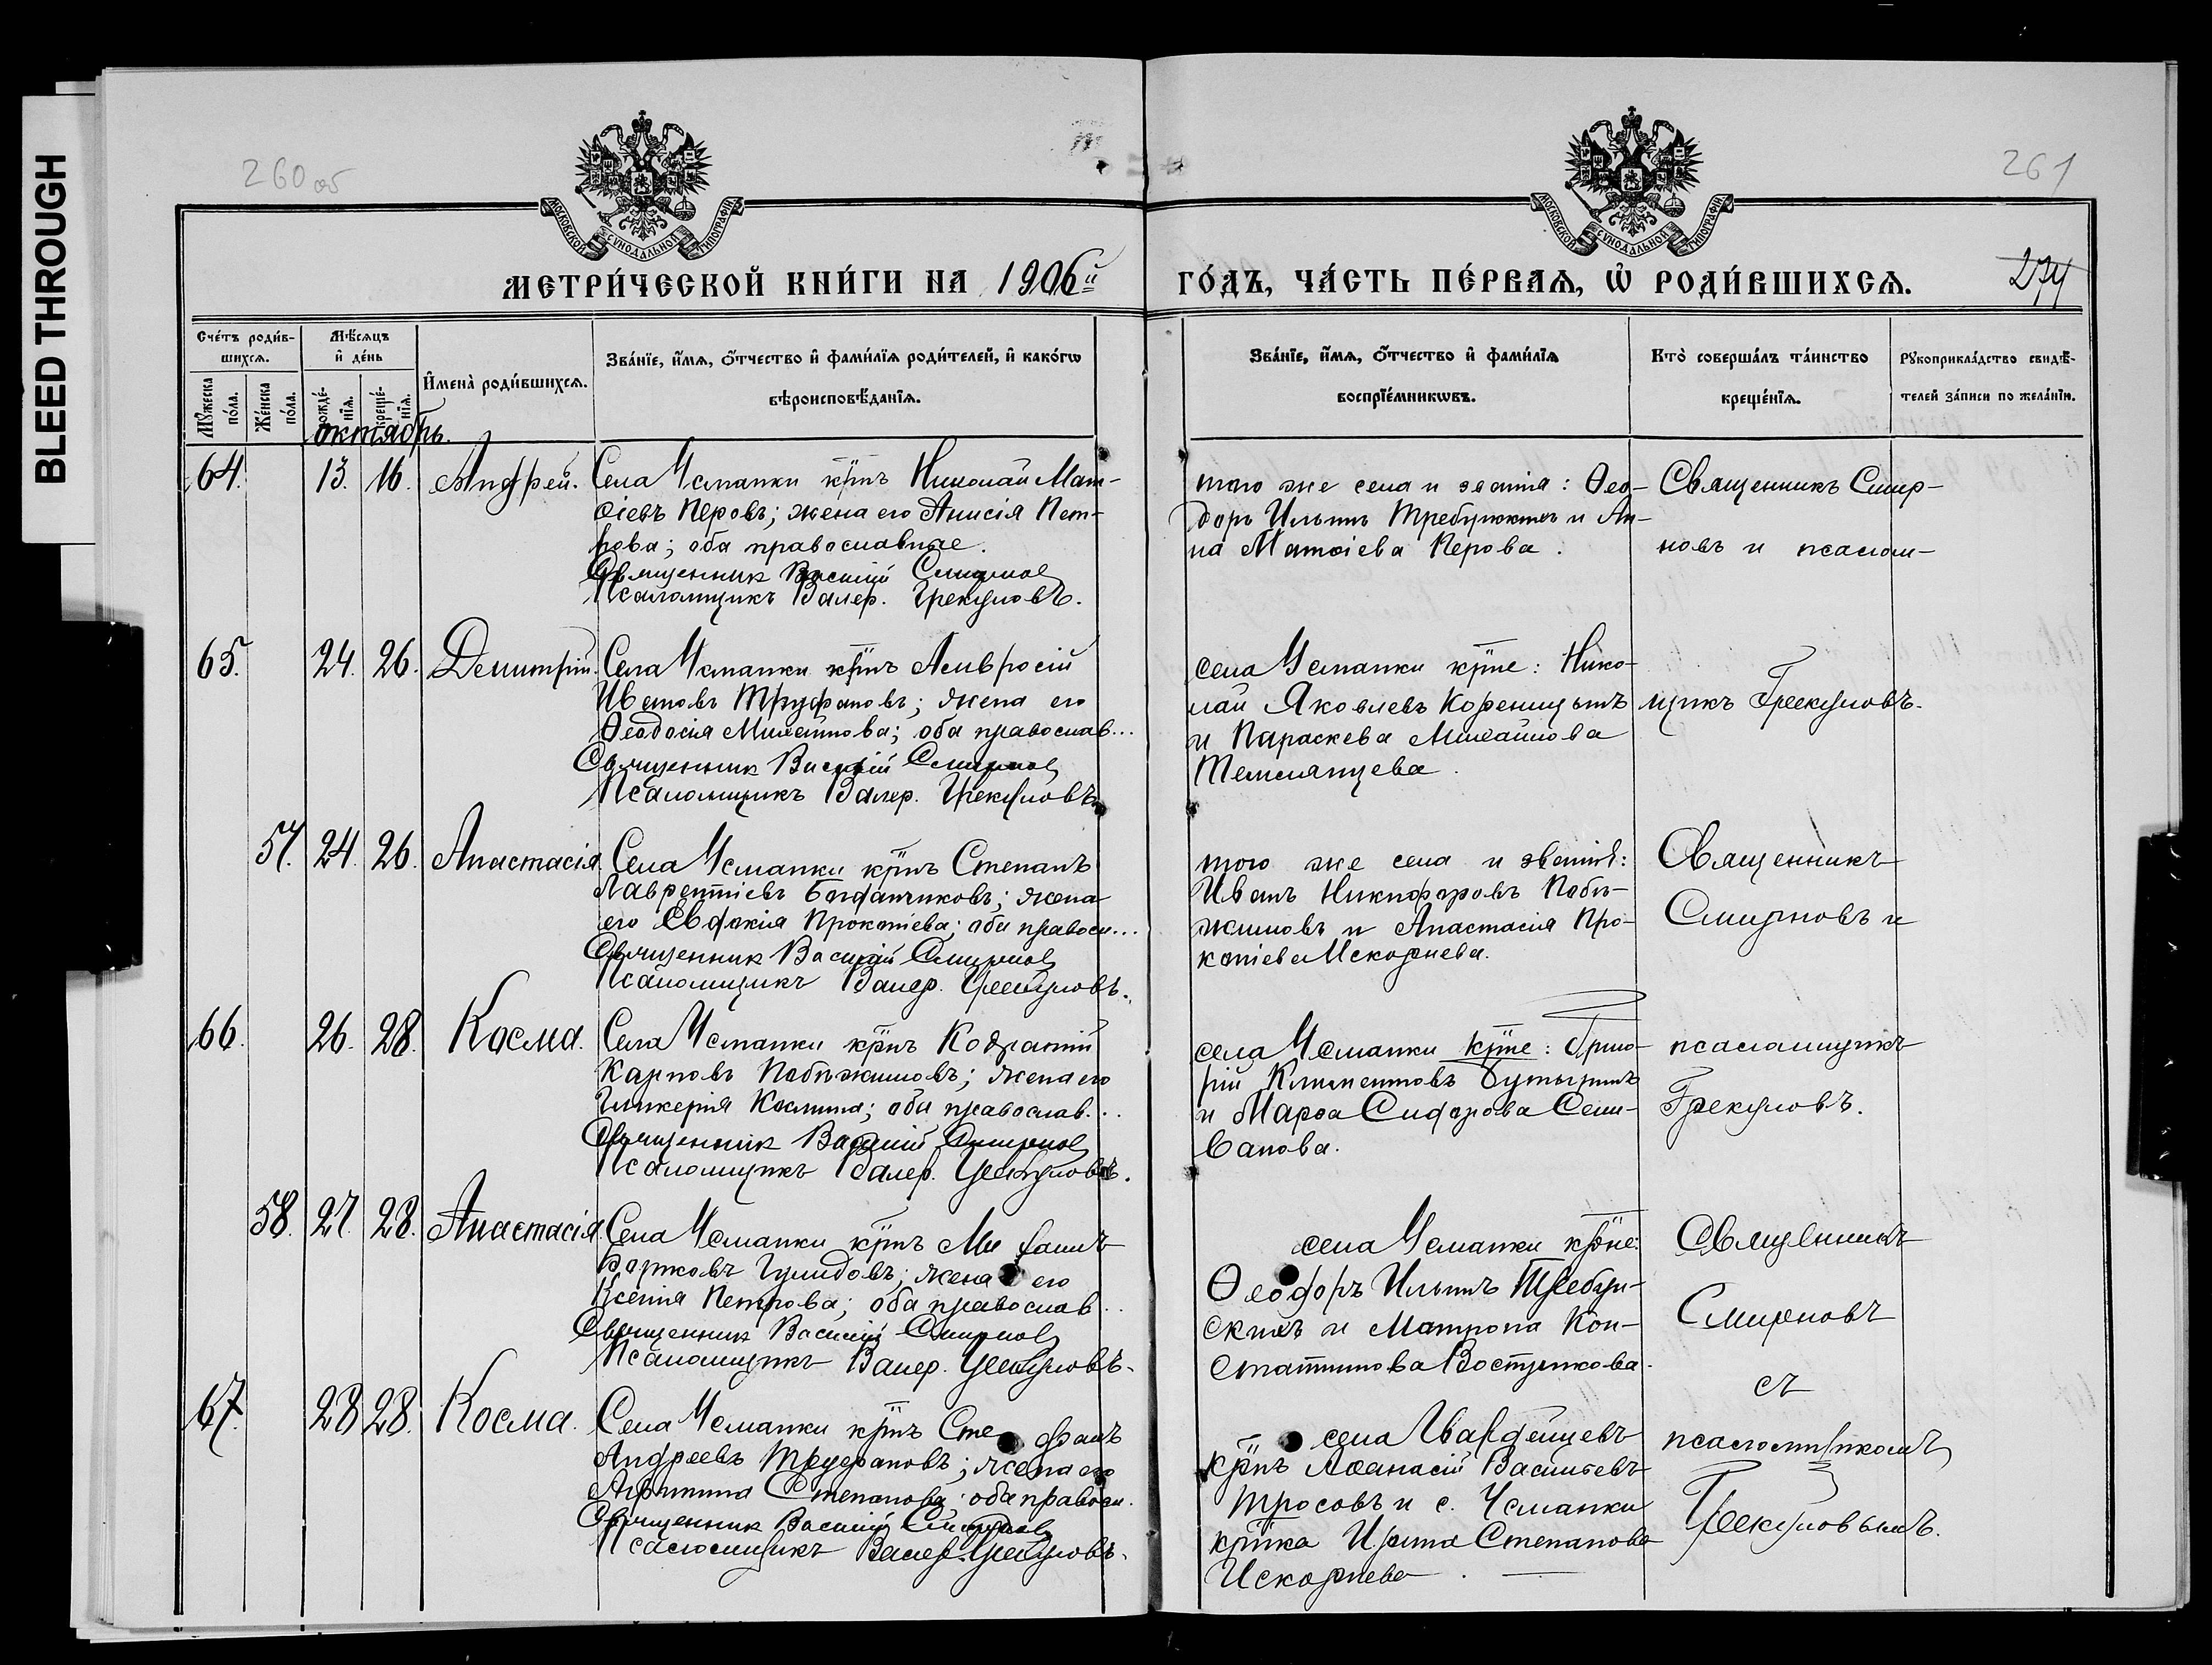 BLEED THROUGH
260 об
261
МОСКОВСКОЙ СѴНОДАЛЬНОЙ ТИПОГРАФІИ
МОСКОВСКОЙ СѴНОДАЛЬНОЙ ТИПОГРАФІИ
МЕТРИ́ЧЕСКОЙ КНИ́ГИ НА 1906й
ГО́ДЪ, ЧА́СТЬ ПЕ́РВАѦ, Ѽ РОДИ́ВШИХСѦ.
274
Сче́тъ роди́в-
шихсѧ.
Мѣ́сѧцъ
и҆ де́нь
И҆мена̀ роди́вшихсѧ.
Зва́нїе, и҆́мѧ, ѻ҆́тчество и҆ фами́лїѧ роди́телей, и҆ како́гѡ
вѣроисповѣ́данїѧ.
Мꙋ́жеска
по́ла.
Же́нска
по́ла.
рожде́-
нїѧ.
креще́-
нїѧ.
Зва́нїе, и҆́мѧ, ѻ҆́тчество и҆ фами́лїѧ
воспрїе́мникѡвъ.
Кто̀ соверша́лъ та́инство
креще́нїѧ.
Рꙋкоприкла́дство свидѣ́-
телей за́писи по жела́нїю.
октябрь.
64. 13. 16. Андрей. Села Усманки крнъ Николай Мат-
ѳіевъ Перовъ; жена его Анисія Пет-
рова; оба православные.
Священник Василій Смирнов
Псаломщикъ Валер. Грекуловъ.
того же села и званія: Ѳео-
доръ Ильинъ Требунскихъ и Ан-
на Матѳіева Перова.
Священникъ Смир-
новъ и псалом-
65. 24. 26. Димитрій. Села Усманки крнъ Амвросій
Ивановъ Труфановъ; жена его
Ѳеодосія Михайлова; оба православ...
Священник Василій Смирнов
Псаломщикъ Валер. Грекуловъ
села Усманки крне: Нико-
лай Яковлевъ Кореницынъ
и Параскева Михайлова
щикъ Грекуловъ.
57. 24. 26. Анастасія Села Усманки крнъ Степанъ
Лаврентіевъ Богданчиковъ; жена
его Евдокія Прокопіева; оба правосл...
Священник Василій Смирнов
Псаломщикъ Валер. Грекуловъ.
того же села и званія:
Иванъ Никифоровъ Побѣ-
жимовъ и Анастасія Про-
копіева Искорнева.
Священникъ
Смирновъ и
66. 26. 28. Косма. Села Усманки крнъ Кодратій
Карповъ Побѣжимовъ; жена его
Гликерія Космина; оба православ...
Священник Василій Смирнов
Псаломщикъ Валер. Грекуловъ.
села Усманки крне: Григо-
рій Климентовъ Бутыринъ
и Марѳа Сидорова Сели-
ванова.
псаломщикъ
Грекуловъ.
58. 27. 28. Анастасія. Села Усманки крнъ Ми хаилъ
Гулидовъ; жена его
Ксенія Петрова; оба православ..
Священник Василій Смирнов
Псаломщикъ Валер. Грекуловъ.
села Усманки крне:
Ѳеодоръ Ильинъ Требун-
скихъ и Матрона Кон-
стантинова Вострикова.
Священникъ
Смирновъ
съ
67. 28 28. Косма. Села Усманки крнъ Сте фанъ
Андреевъ Труфановъ; жена его
Степанова; оба правосл.
Священник Василій Смирнов
Псаломщикъ Валер. Грекуловъ.
села Гвардейцевъ
крнъ Аѳанасій Васильевъ
Тросовъ и с. Усманки
крнка Ирина Степанова
Искорнева.
псаломщикомъ
Грекуловымъ.